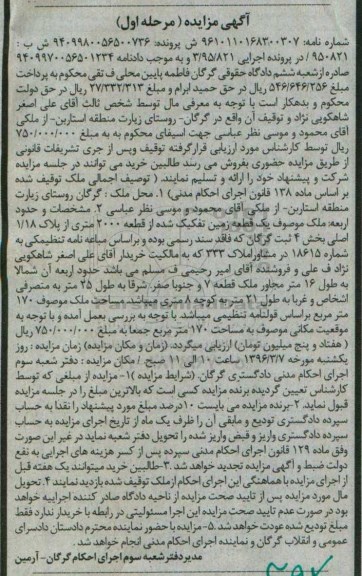 آگهی مزایده ( مرحله اول)
شماره نامه: ۹۶۱۰۱۱۰۱۶۸۳۰۰۳۰۷ ش پرونده: ۹۴۰۹۹۸۰۰۵۶۵۰۰۷۳۶ ش ب :
۹۵۰۸۲۱ / در پرونده اجرایی ۳/۹۵/۸۲۱ و به موجب دادنامه ۹۴۰۹۹۷۰۰۵۶۵۰۱۲۳۴
صادره از شعبه ششم دادگاه حقوقی گرگان فاطمه پایین محلی ف تقی محکوم به پرداخت
مبلغ ۵۴۶/۶۴۶/۲۵۶ ریال در حق حمید ابرام و مبلغ ۲۷/۳۳۲/۳۱۳ ریال در حق دولت
محکوم و بدهکار است با توجه به معرفی مال توسط شخص ثالث آقای علی اصغر
شاهکویی نژاد و توقیف آن واقع در گرگان- روستای زیارت منطقه استارین- از ملکی
آقای محمود و موسی نظر عباسی جهت استیفای محکوم به به مبلغ ۷۵۰/۰۰۰/۰۰۰
ریال توسط کارشناس مورد ارزیابی قرارگرفته توقیف وپس از جری تشریفات قانونی
از طریق مزایده حضوری بفروش می رسد طالبین خرید می توانند در جلسه مزایده
شرکت و پیشنهاد خود را ارائه و تسلیم نمایند. ( توصیف اجمالی ملک توقیف شده
بر اساس ماده ۱۳۸ قانون اجرای احکام مدنی) ۱. محل ملک : گرگان روستای زیارت
منطقه استارین- از ملکی آقای محمود و موسی نظر عباسی ۲. مشخصات و حدود
اربعه: ملک موصوف یک قطعه زمین تفکیک شده از قطعه ۲۰۰۰ متری از پلاک ۱/۱۸
اصلی بخش ۴ ثبت گرگان که فاقد سند رسمی بوده و براساس مبایعه نامه تنظیمکی به
شماره ۱۸۶۱۵ در مشاوراملاک ۳۳۳ که به مالکیت خریدار آقای علی اصغر شاهکویی
نژاد ف علی و فروشنده آقای امیر رحیمی ف مسلم می باشد حدود اربعه آن شمالا
به طول ۱۶ متر مجاور ملک قطعه ۷ و جنوبا صفر شرقا به طول ۲۵ متر به متصرفی
اشخاص و غربا به طول ۲۱ متر به کوچه ۸ متری میباشد. مساحت ملک موصوف ۱۷۰
متر مربع براساس قولنامه تنظیمی میباشد. با توجه به بررسی بعمل آمده و با توجه به
موقعیت مکانی موصوف به مساحت ۱۷۰ متر مربع جمعا به مبلغ ۷۵۰/۰۰۰/۰۰۰ ریال
( هفتاد و پنج میلیون تومان) ارزیابی میگردد. (زمان و مکان مزایده) زمان مزایده : روز
یکشنبه مورخه ۱۳۹۶/۳/۷ ساعت ۱۰ الی ۱۱ صبح / مکان مزایده : دفتر شعبه سوم
اجرای احکام مدنی دادگستری گرگان. (شرایط مزایده )۱- مزایده از مبلغی که توسط
کارشناس تعیین گردیده برنده مزایده کسی است که بالاترین مبلغ را در جلسه مزایده
قبول نماید. ۲-برنده مزایده می بایست ۱۰درصد مبلغ مورد پیشنهاد را نقدا به حساب
سپرده دادگستری تودیع و مابقی آن را ظرف یک ماه از تاریخ اجرای مزایده به حساب
سپرده دادگستری واریز و قبض واریز شده را تحویل دفتر شعبه نماید در غیر این صورت
وفق ماده ۱۲۹ قانون اجرای احکام مدنی سپرده پس از کسر هزینه های اجرایی به نفع
دولت ضبط و آگهی مزایده تجدید خواهد شد .۳-طالبین خرید میتوانند یک هفته قبل
از اجرای مزایده با هماهنگی این اجرای احکام از ملک توقیف شده بازدید نمایند ۴. تحویل
مال مورد مزایده پس از تایید صحت مزایده از ناحیه دادگاه صادر کننده اجراییه خواهد
بود در صورت عدم تایید صحت مزایده این اجرا مسئولیتی در رابطه با خریدار ندارد فقط
مبلغ تودیع شده عودت خواهد شد. ۵-مزایده با حضور نماینده محترم دادستان دادسرای
عمومی و انقلاب گرگان و نماینده اجرای احکام مدنی انجام خواهد شد .
مدیر دفتر شعبه سوم اجرای احکام گرگان- آرمین